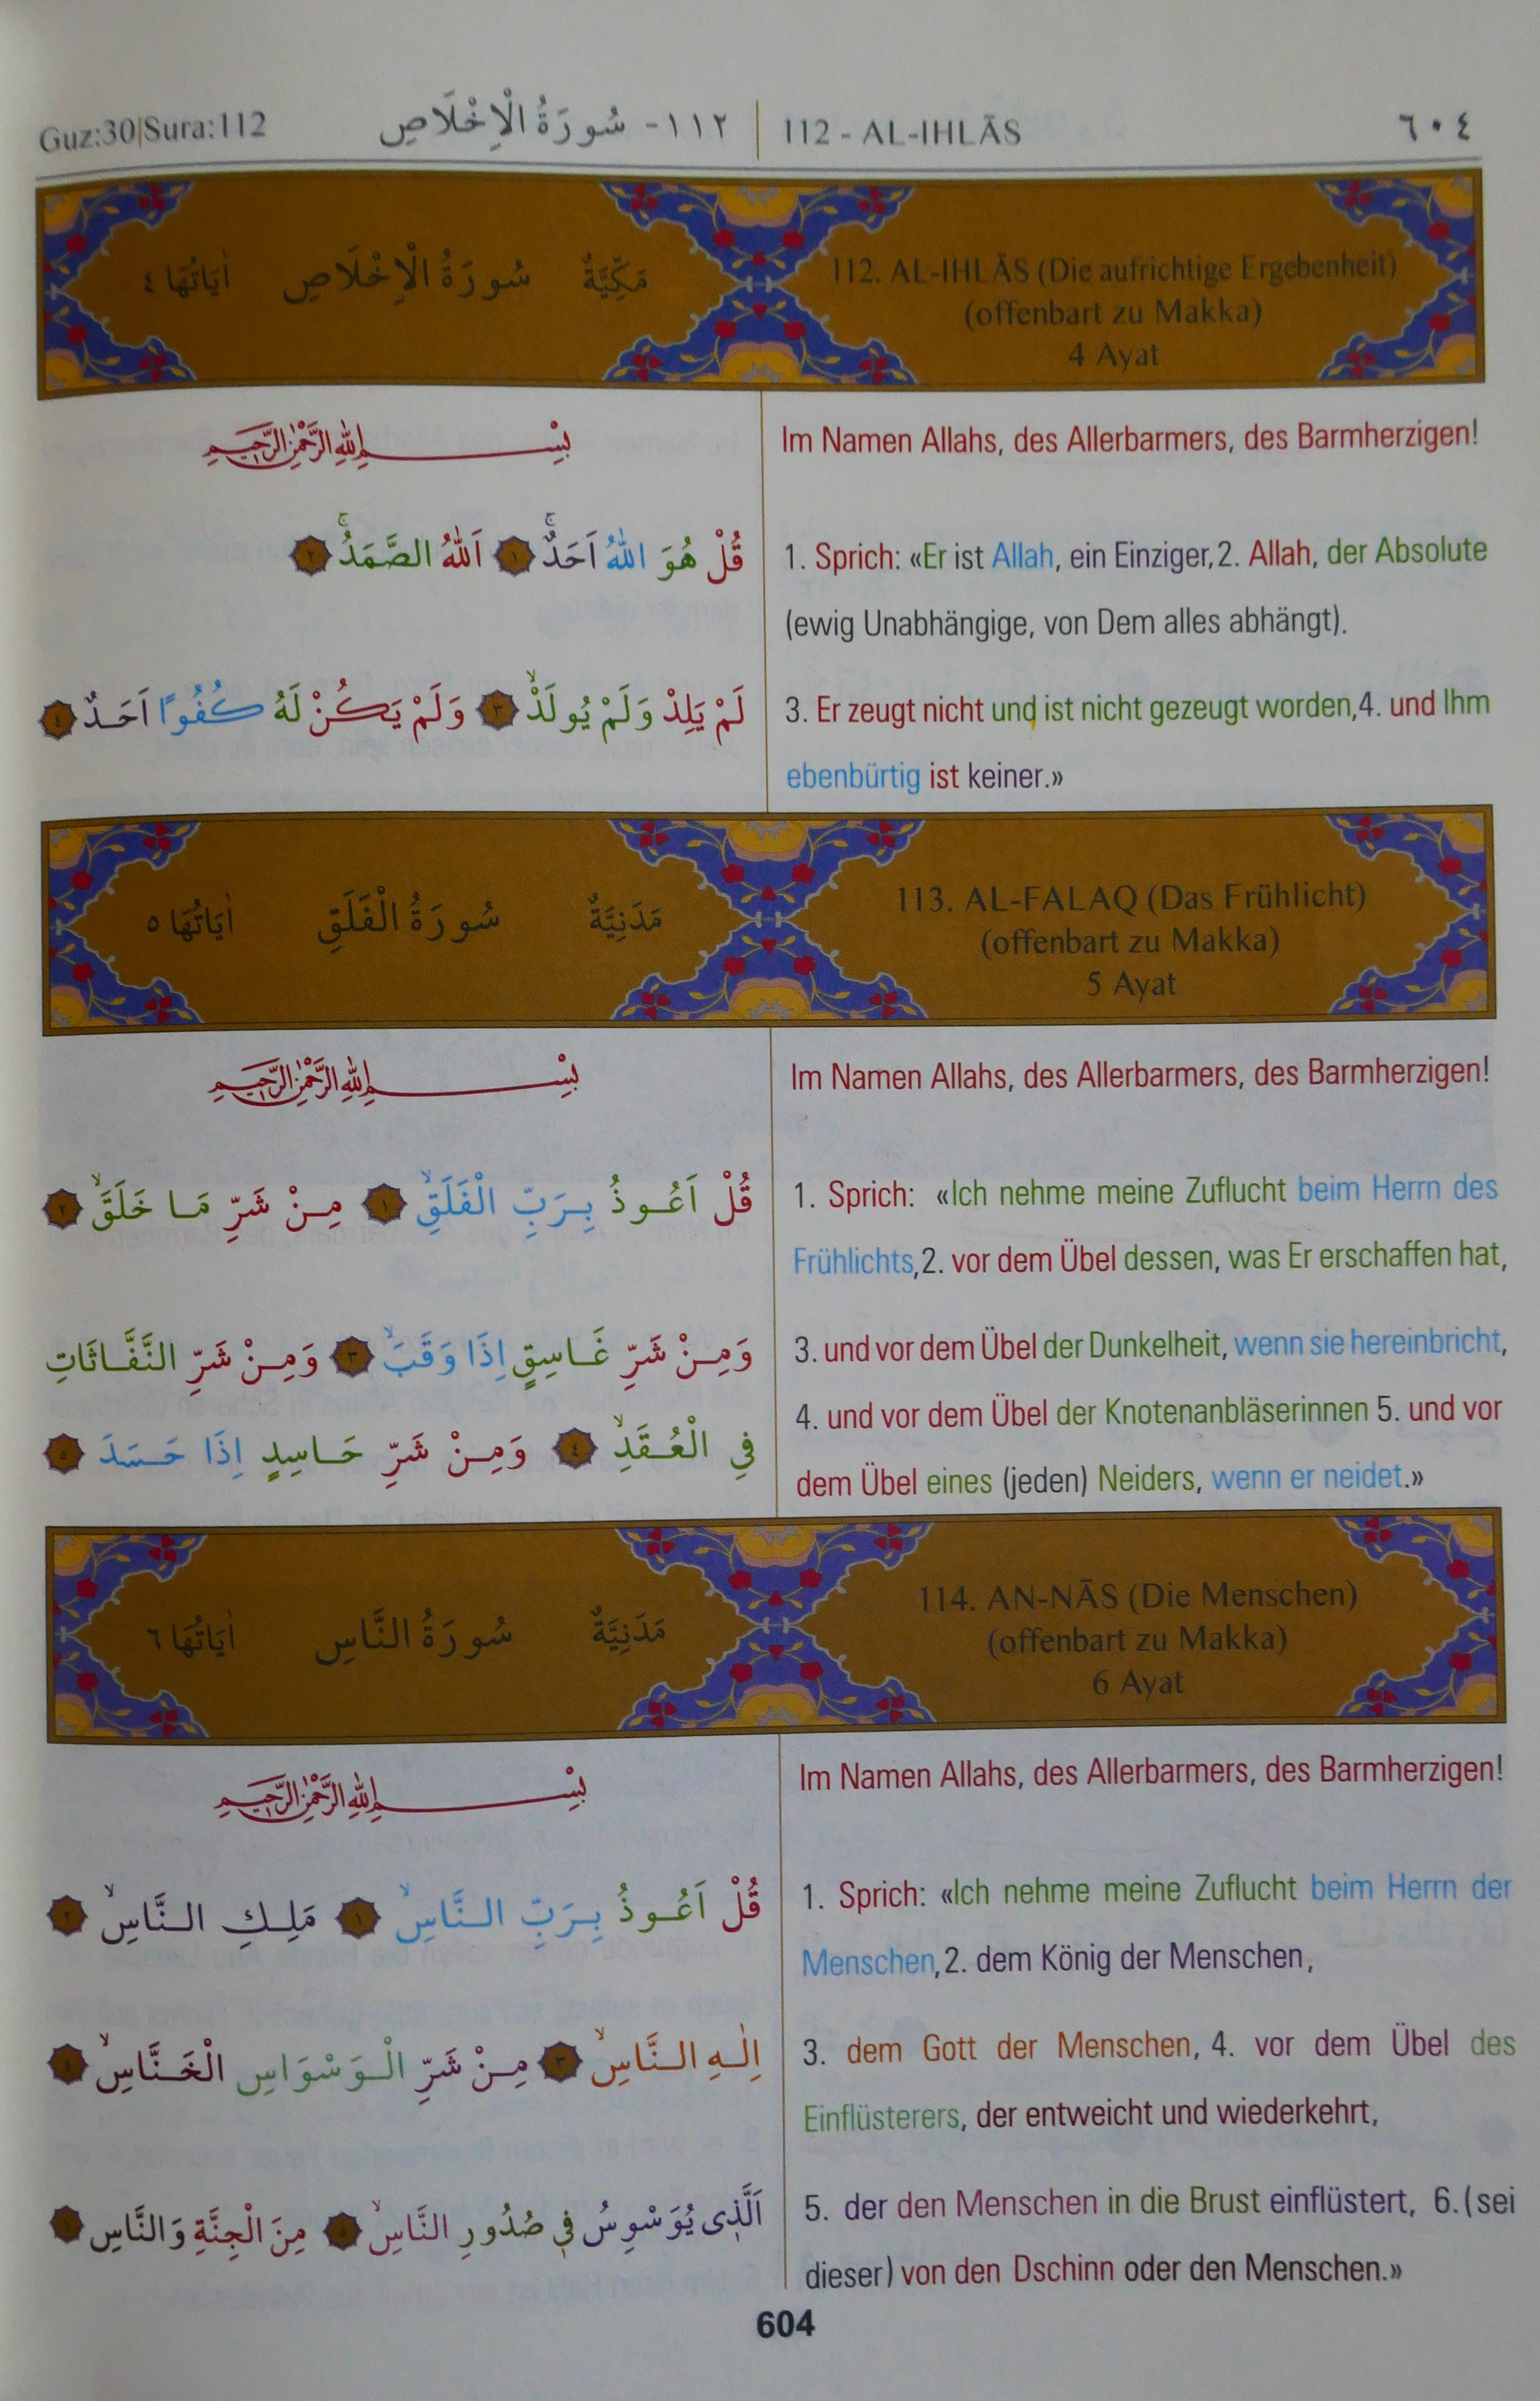 Guz:30|Sura:112
١١٢- سُورَةُ الْاِخْلَاصِ
112 - AL-IHLĀS
٦٠٤
مَكِّيَّةٌ سُورَةُ الْاِخْلَاصِ اٰيَاتُهَا ٤
112. AL-IHLĀS (Die aufrichtige Ergebenheit)
(offenbart zu Makka)
4 Ayat
بِسْمِ اللهِ الرَّحْمٰنِ الرَّحِيمِ
قُلْ هُوَ اللهُ اَحَدٌۚ ١ اَللهُ الصَّمَدُۚ ٢
لَمْ يَلِدْ وَلَمْ يُولَدْۙ ٣ وَلَمْ يَكُنْ لَهُ كُفُوًا اَحَدٌ ٤
Im Namen Allahs, des Allerbarmers, des Barmherzigen!
1. Sprich: «Er ist Allah, ein Einziger,2. Allah, der Absolute
(ewig Unabhängige, von Dem alles abhängt).
3. Er zeugt nicht und ist nicht gezeugt worden,4. und Ihm
ebenbürtig ist keiner.»
مَدَنِيَّةٌ سُورَةُ الْفَلَقِ اٰيَاتُهَا ٥
113. AL-FALAQ (Das Frühlicht)
(offenbart zu Makka)
5 Ayat
بِسْمِ اللهِ الرَّحْمٰنِ الرَّحِيمِ
قُلْ اَعُوذُ بِرَبِّ الْفَلَقِۙ ١ مِنْ شَرِّ مَا خَلَقَۙ ٢
وَمِنْ شَرِّ غَاسِقٍ اِذَا وَقَبَۙ ٣ وَمِنْ شَرِّ النَّفَّاثَاتِ
فِي الْعُقَدِۙ ٤ وَمِنْ شَرِّ حَاسِدٍ اِذَا حَسَدَ ٥
Im Namen Allahs, des Allerbarmers, des Barmherzigen!
1. Sprich: «Ich nehme meine Zuflucht beim Herrn des
Frühlichts,2. vor dem Übel dessen, was Er erschaffen hat,
3. und vor dem Übel der Dunkelheit, wenn sie hereinbricht,
4. und vor dem Übel der Knotenanbläserinnen 5. und vor
dem Übel eines (jeden) Neiders, wenn er neidet.»
مَدَنِيَّةٌ سُورَةُ النَّاسِ اٰيَاتُهَا ٦
114. AN-NĀS (Die Menschen)
(offenbart zu Makka)
6 Ayat
بِسْمِ اللهِ الرَّحْمٰنِ الرَّحِيمِ
قُلْ اَعُوذُ بِرَبِّ النَّاسِۙ ١ مَلِكِ النَّاسِۙ ٢
اِلٰهِ النَّاسِۙ ٣ مِنْ شَرِّ الْوَسْوَاسِ الْخَنَّاسِۙ ٤
اَلَّذِى يُوَسْوِسُ فِي صُدُورِ النَّاسِۙ ٥ مِنَ الْجِنَّةِ وَالنَّاسِ ٦
Im Namen Allahs, des Allerbarmers, des Barmherzigen!
1. Sprich: «Ich nehme meine Zuflucht beim Herrn der
Menschen,2. dem König der Menschen,
3. dem Gott der Menschen, 4. vor dem Übel des
Einflüsterers, der entweicht und wiederkehrt,
5. der den Menschen in die Brust einflüstert, 6.(sei
dieser) von den Dschinn oder den Menschen.»
604